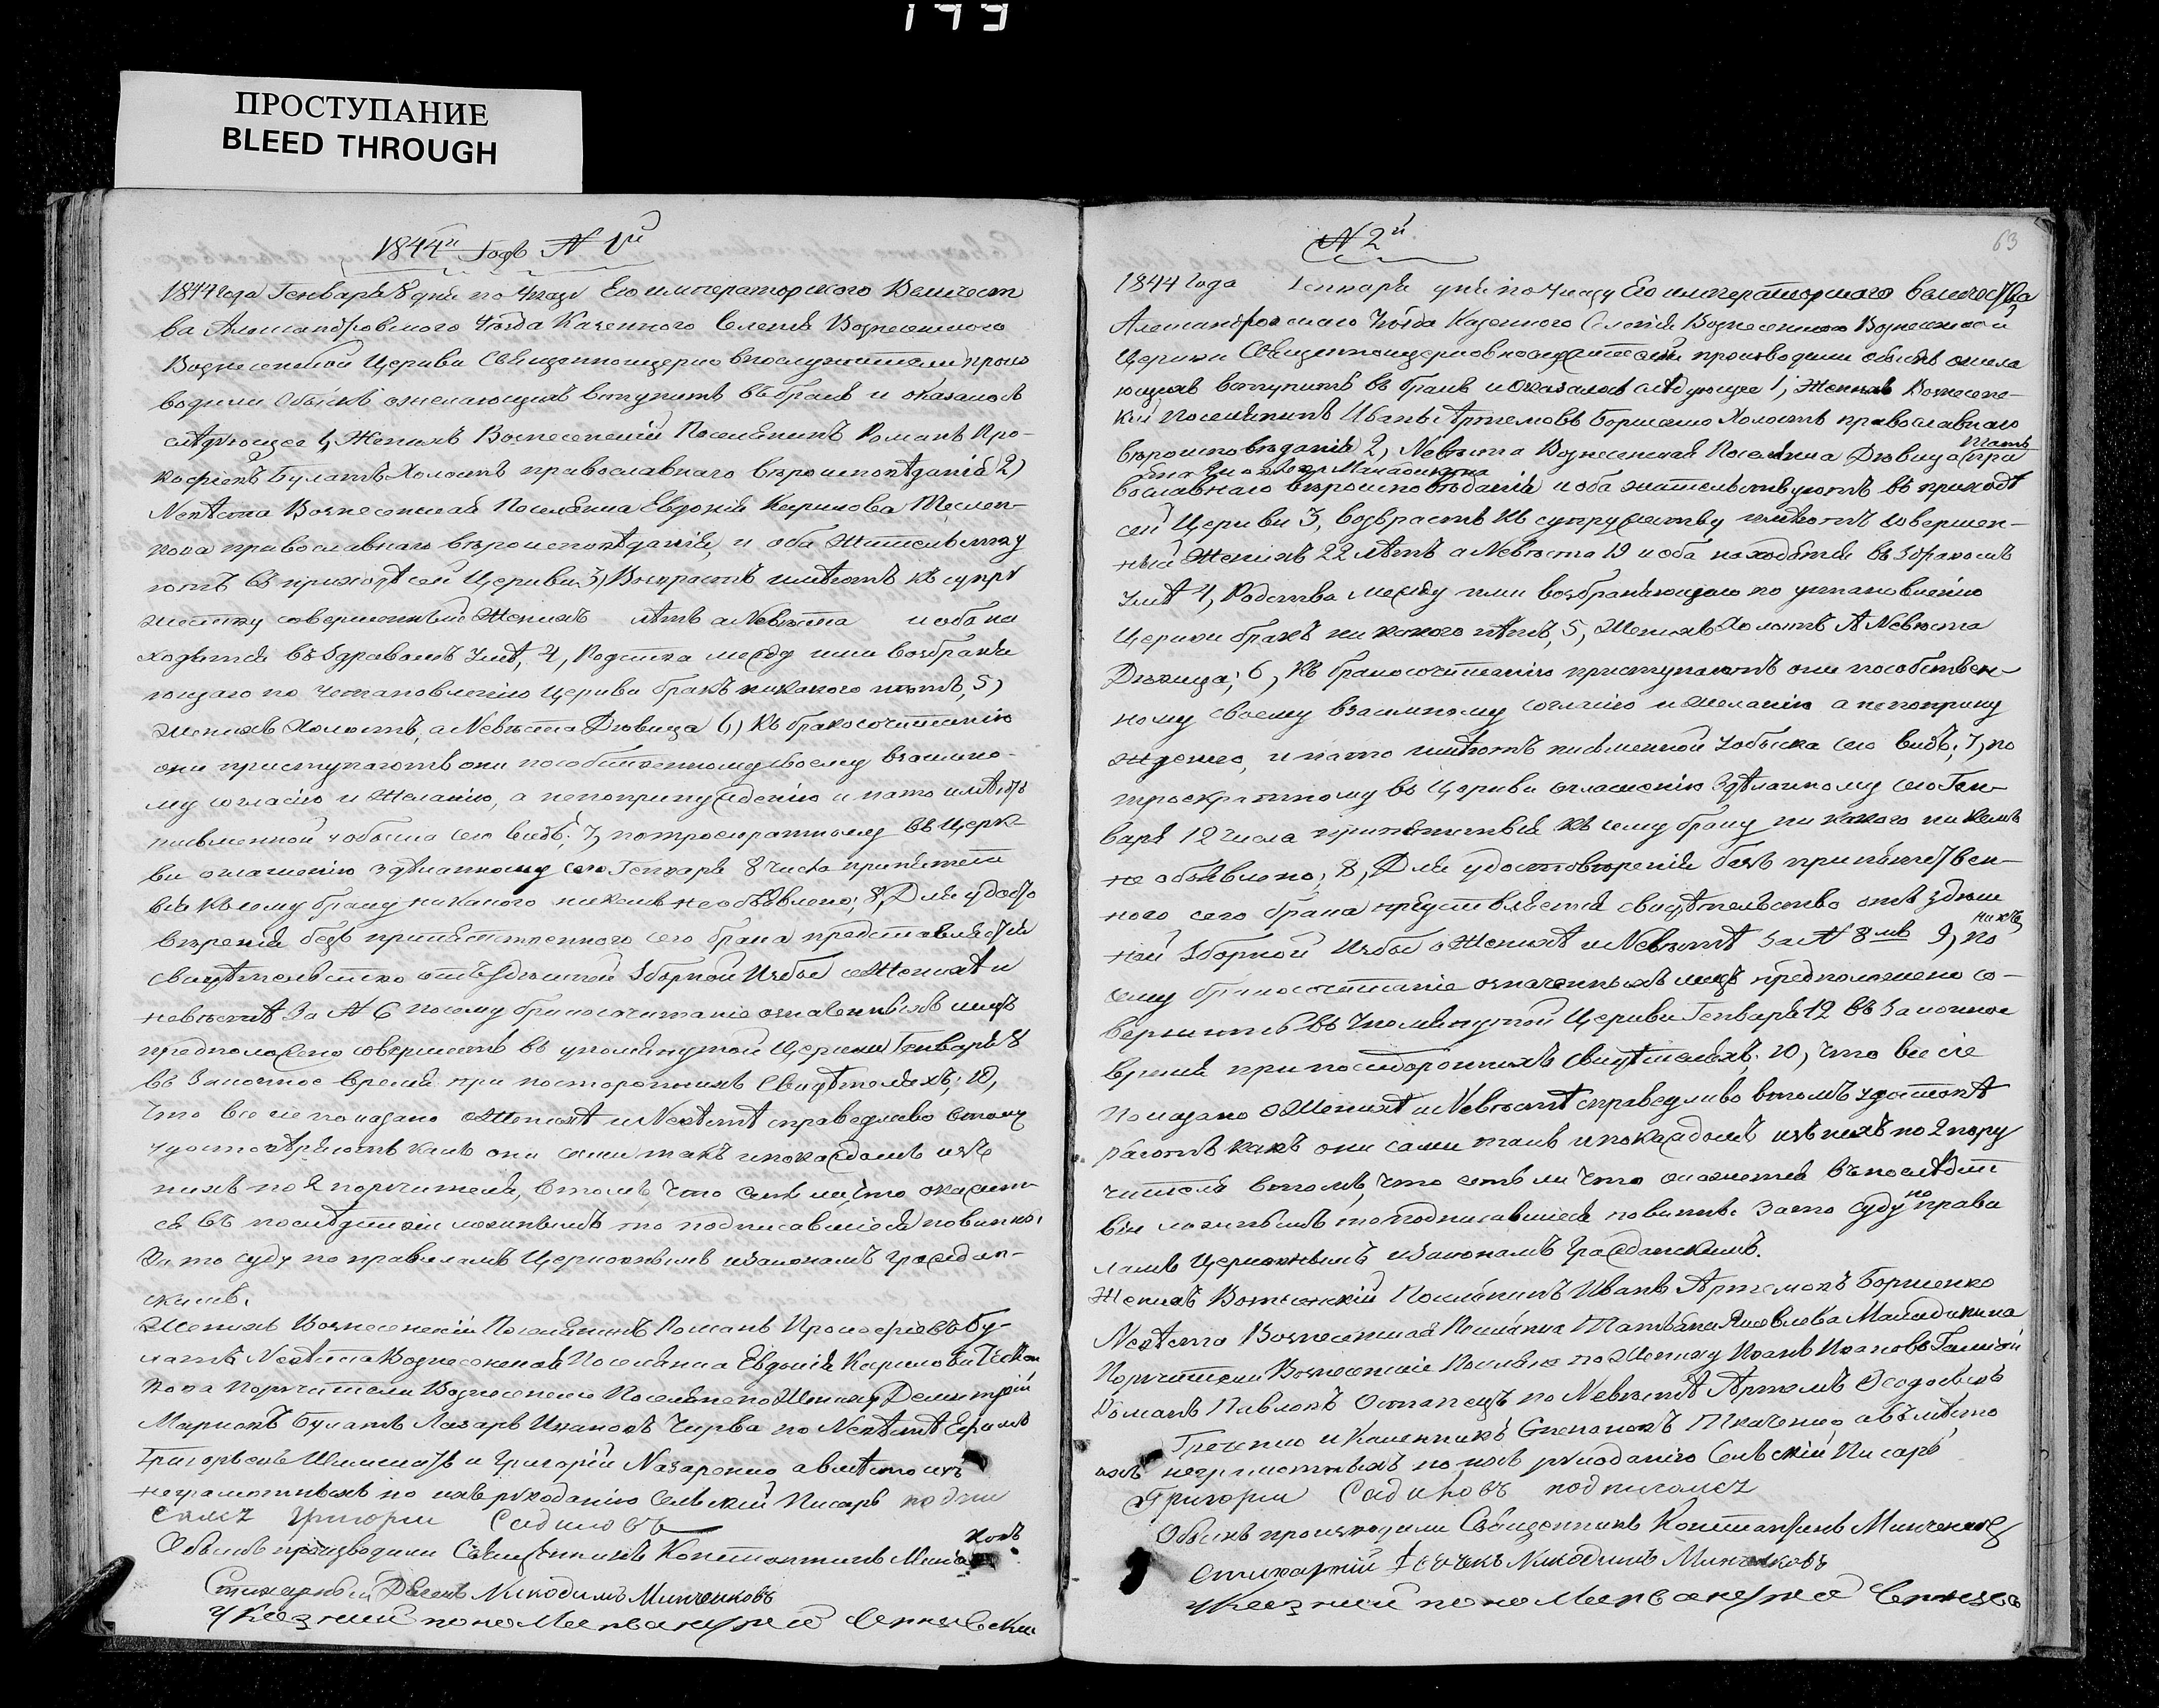 ПРОСТУПАНИЕ
BLEED THROUGH
1844й Годъ № 1й
1844 года Генваря 8 дня по указу Его императорскаго Величест
ва Александровскаго Уѣзда Казеннаго Селенія Вознесенскаго
Вознесенской Церкви Священноцерковнослужители произ
водили обыскъ о желающихъ вступить въ бракъ и оказалось
слѣдующее 1, Женихъ Вознесенскій Поселянинъ Романъ Про-
кофіевъ Булатъ Холостъ православнаго вѣроисповѣданія 2)
Невѣста Вознесенская Поселянка Евдокія Кирилова
православнаго вѣроисповѣданія, и оба жительству
ютъ въ приходѣ сей Церкви 3) Возрастъ имѣютъ къ супру
жеству совершенный Женихъ лѣтъ а Невѣста и оба на
ходятся въ здравомъ умѣ, 4, Родства между ими возбраня
ющаго по установленію Церкви бракъ никакого нѣтъ, 5)
Женихъ Холостъ, а Невѣста Дѣвица 6) Къ бракосочитанію
они приступаютъ они по собственному своему взаимно-
му согласію и желанію, а не по принужденію и на то имѣютъ
письменной у обыска сего видъ; 7, по троекратному въ Церк-
ви оглашенію здѣланному сего Генваря 8 числа препятст
вія къ сему браку никакого никемъ не объявлено; 8, Для удосто
вѣренія безъ препятственного сего брака представляется
свидѣтельство отъ здѣшней Зборной Избы о Женихѣ и
невѣстѣ за № 6 посему бракосочитаніе означенныхъ лицъ
предположено совершить въ упомянутой Церкви Генваря 8
въ законное время при постороннихъ Свидѣтеляхъ; 10,
что все сіе показано о Женихѣ и Невѣстѣ справедливо в томъ
удостовѣряютъ какъ они сами такъ и по каждомъ изъ
нихъ по 2 поручителя, в томъ, что есть ли что окажет-
ся въ послѣдствіи ложнымъ то подписавшіеся повинны
за то суду по правиламъ Церковнымъ и законамъ граждан-
скимъ.
Женихъ Вознесенскій Поселянинъ Романъ Прокофіевъ Бу-
латъ Невѣста Вознесенская Поселянка Евдокія Кирилова
Поручители Вознесенскіе Поселяне по Женихѣ Демитрій
Марковъ Булатъ Лазарь Ивановъ Чирва по Невѣстѣ Ефимъ
Григорьевъ и Григорій Назаренко а вместо ихъ
неграмотныхъ по ихъ рукоданію Сельскій Писарь подпи
салсz Григорий Садиковъ
Обыскъ производили Священникъ Константинъ Минченковъ
Стихарный Дьячекъ Никодимъ Минченковъ
Указний пономарь
№ 2й
63
1844 года Генваря дня по указу Его императорскаго величества
Александровскаго Уѣзда Казенного Селенія Вознесенского Вознесенской
Церкви Священноцерковнослужители производили обыскъ о жела
ющихъ вступить въ бракъ и оказалось слѣдующее 1, Женихъ Вознесенс-
кій Поселянинъ Иванъ Артемовъ Борисенко Холостъ православнаго
вѣроисповѣданія 2, Невѣста Вознесенская Поселянка Дѣвица Тать пра
вославнаго вѣроисповѣданія и оба жительствуютъ въ приходѣ
сей Церкви 3, возврастъ къ супружеству имѣютъ совершен-
ный Женихъ 22 лѣтъ а Невѣста 19 и оба находятся въ здравомъ
умѣ 4, Родства между ими возбраняющаго по установленію
Церкви бракъ никакого нѣтъ, 5, Женихъ Холостъ а Невѣста
Дѣвица; 6, къ бракосочитанію приступаютъ они по собствен-
ному своему взаимному согласію и желанію а не по прину
жденію, и на то имѣютъ письменной у обыска сего видъ; 7, по
троекратному въ Церкви оглашенію здѣланному сего Ген-
варя 12 числа препятствія къ сему браку никакого никемъ
не объявлено; 8, Для удостовѣренія безъ препятствен-
ного сего брака представляется свидѣтельство отъ здѣш
ней Зборной Избы о Женихѣ и Невѣстѣ за № 8мъ 9, по
сему бракосочитаніе означенныхъ лицъ предположено со-
вершить въ упомянутой Церкви Генваря 12 въ законное
время при постороннихъ свидѣтеляхъ; 10, что все сіе
показано о Женихѣ и Невѣстѣ справедливо в томъ удостовѣ
ряютъ какъ они сами такъ и по каждомъ изъ нихъ по 2 пору
чителя в томъ, что есть ли что окажется въ послѣдст
віи ложнымъ то подписавшіеся повинны за то суду по прави
ламъ Церковнымъ и законамъ Гражданскимъ.
Женихъ Вознесенскій Поселянинъ Иванъ Артемовъ Борисенко
Невѣста Вознесенская Поселянка Татьяна Яковлева
Поручители Вознесенскіе Поселяне по Жениху Иванъ Ивановъ
Романъ Павловъ Остапецъ по Невѣстѣ Артемъ Федоровъ
Гречекко и Калениикъ Степановъ Ткаченко, а въмѣсто
ихъ неграмотныхъ по ихъ рукоданію Сельскій Писарь
Григорий Садиковъ подписалсz
Обыскъ производили Священникъ Константинъ Минченковъ
Стихарный Дьячекъ Никодимъ Минченковъ
Указний пономарь